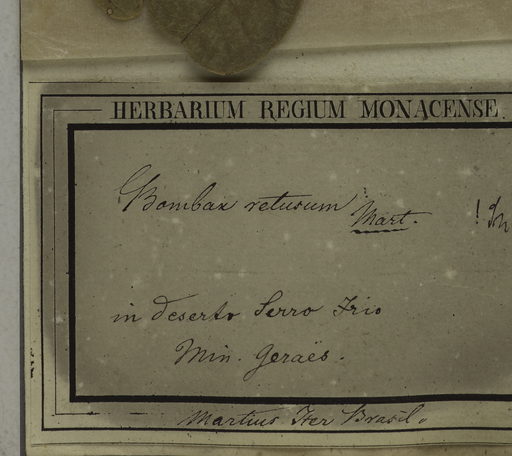 HERBARIUM REGIUM MONACENSE
Bombax retusum Mart. !
in deserto Serro Frio
Min. Geraës.
Martius Iter Brasil.